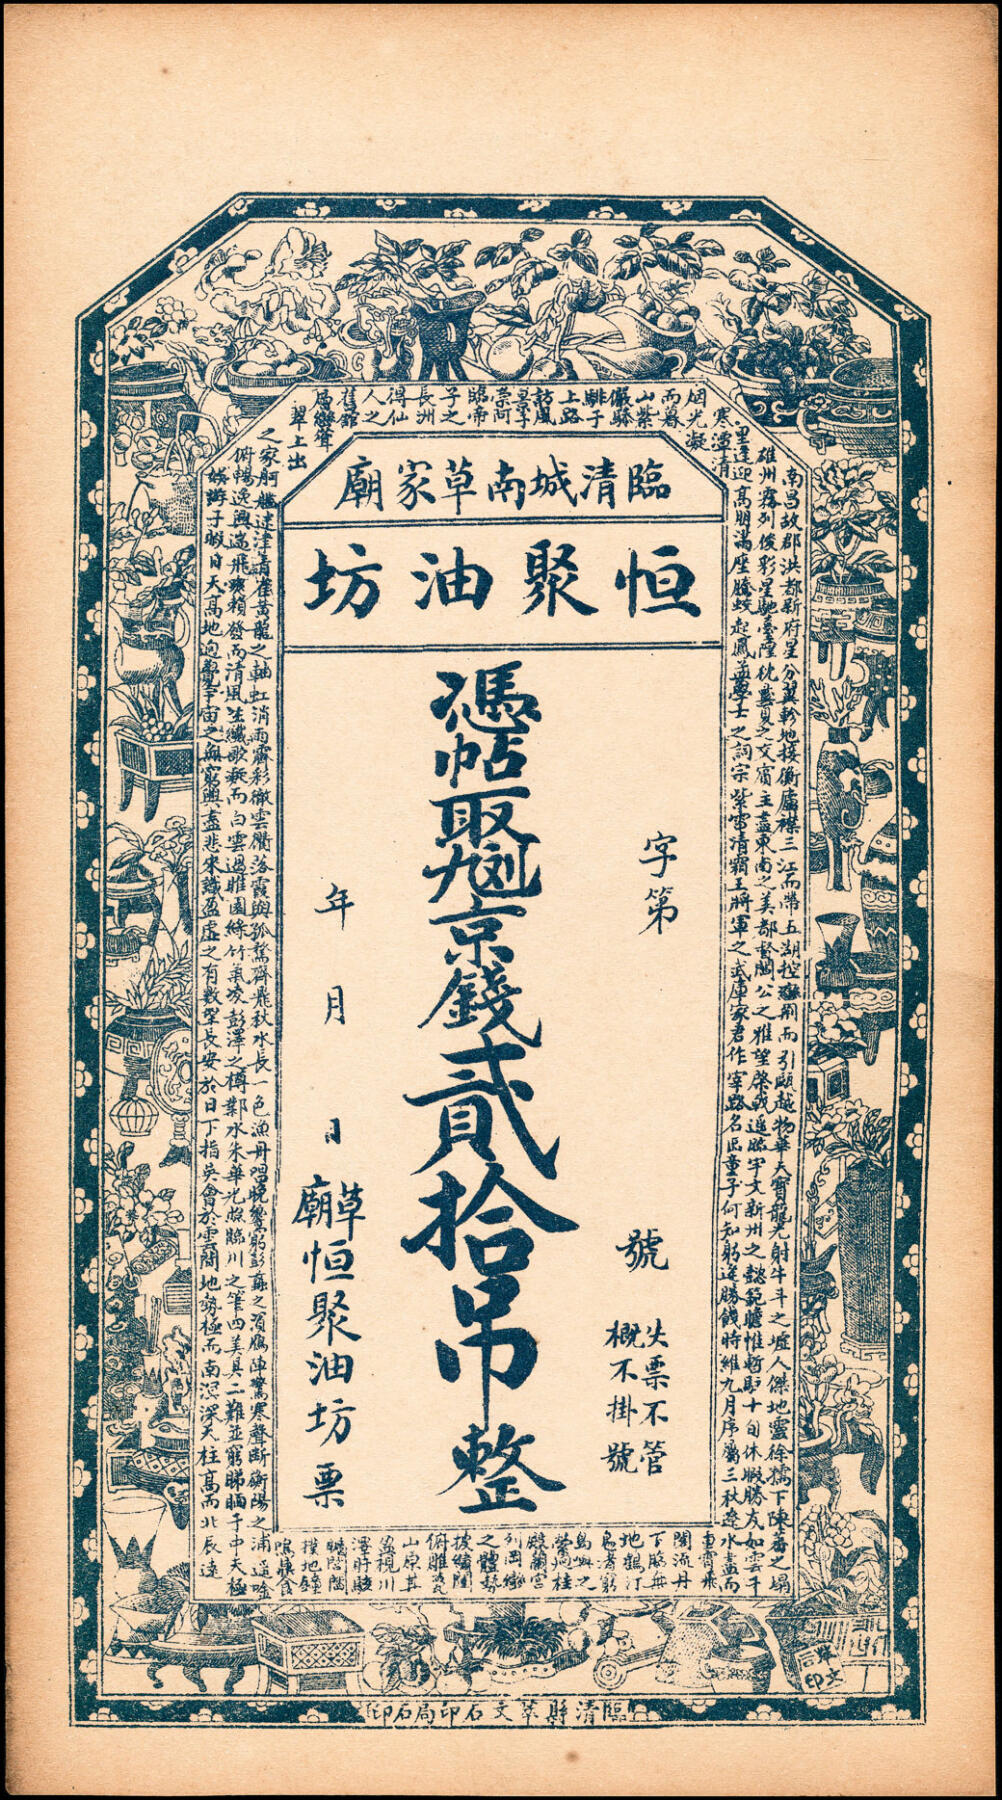 臨清城南草家廟
恒聚油坊
字第 號
失票不管
概不掛號
憑帖取九京錢貳拾吊整
年 月 日
草廟恒聚油坊票
南昌故郡洪都新府星分翼軫地接衡廬襟三江而帶五湖控蠻荆而引甌越物華天寶龍光射牛斗之墟人傑地靈徐孺下陳蕃之榻
雄州霧列俊彩星馳臺隍枕夷夏之交賓主盡東南之美都督閻公之雅望棨戟遥臨宇文新州之懿範襜惟暫駐十旬休暇勝友如雲千
里逢迎高朋滿座騰蛟起鳳孟學士之詞宗紫電清霜王將軍之武庫家君作宰路名區童子何知躬逢勝餞時維九月序屬三秋潦水盡而
寒潭清
烟光凝
而暮
山紫
儼驂
騑于
上路
訪風
景于
崇阿
臨帝
子之
長洲
得仙
人之
舊館
層巒聳
翠上出
重霄飛
閣流丹
下臨無
地鶴汀
鳧渚窮
島嶼之
縈迴桂
殿蘭宮
列岡巒
之體勢
披繡闥
俯雕甍
山原其
盈視川
澤盱駭
矚閭閻
撲地鐘
鳴鼎食
之家舸艦迷津青雀黃龍之軸虹消雨霽彩徹雲衢落霞與孤鶩齊飛秋水長一色漁舟唱晚響窮彭蠡之濱雁陣驚寒聲斷衡陽之浦遥吟
俯暢逸興遄飛爽籟發而清風生纖歌凝而白雲遏睢園綠竹氣凌彭澤之樽鄴水朱華光照臨川之筆四美具二難並窮睇眄于中天極
娛遊于暇日天高地迥覺宇宙之無窮興盡悲來識盈虛之有數望長安於日下指吳會於雲間地勢極而南溟深天柱高而北辰遠
臨清縣萃文石印局石印